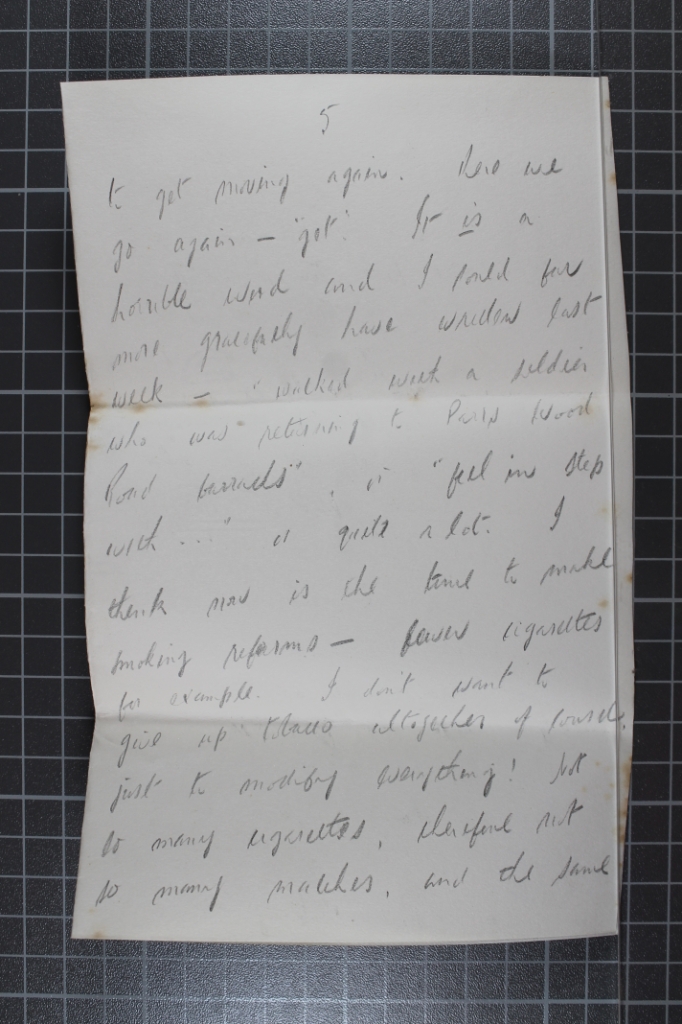 5
to get moving again. Here we
go again — "got". It is a
horrible word and I could far
more gracefully have written last
week — "walked with a soldier
who was returning to Parrs Wood
Road barracks", or "fell in step
with ..." or quite a lot. I
think now is the time to make
smoking reforms — fewer cigarettes
for example. I don't want to
give up tobacco altogether of course,
just to modify everything! Not
so many cigarettes, therefore not
so many matches, and the same